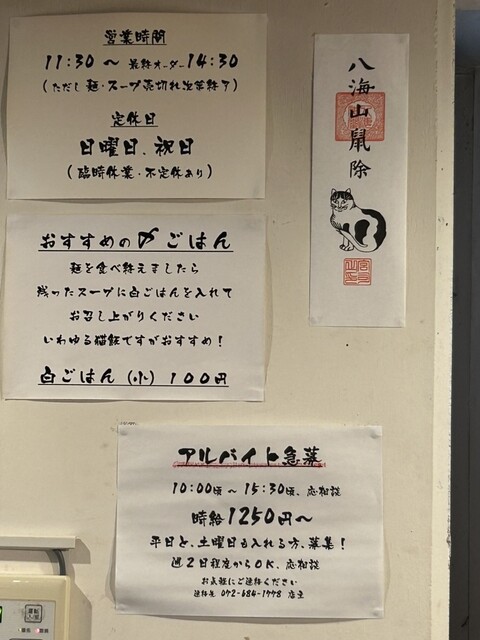 営業時間
11:30～最終オーダー14:30
(ただし麺・スープ売切れ次第終了)
定休日
日曜日、祝日
(臨時休業・不定休あり)
八海山鼠除
おすすめの〆ごはん
麺を食べ終えましたら
残ったスープに白ごはんを入れて
お召し上がりください
いわゆる猫飯ですがおすすめ!
白ごはん(小)100円
アルバイト急募
10:00頃～15:30頃、応相談
時給1250円～
平日と、土曜日も入れる方、募集!
週2日程度からOK、応相談
お気軽にご連絡ください
連絡先 072-684-1778 店主
運転